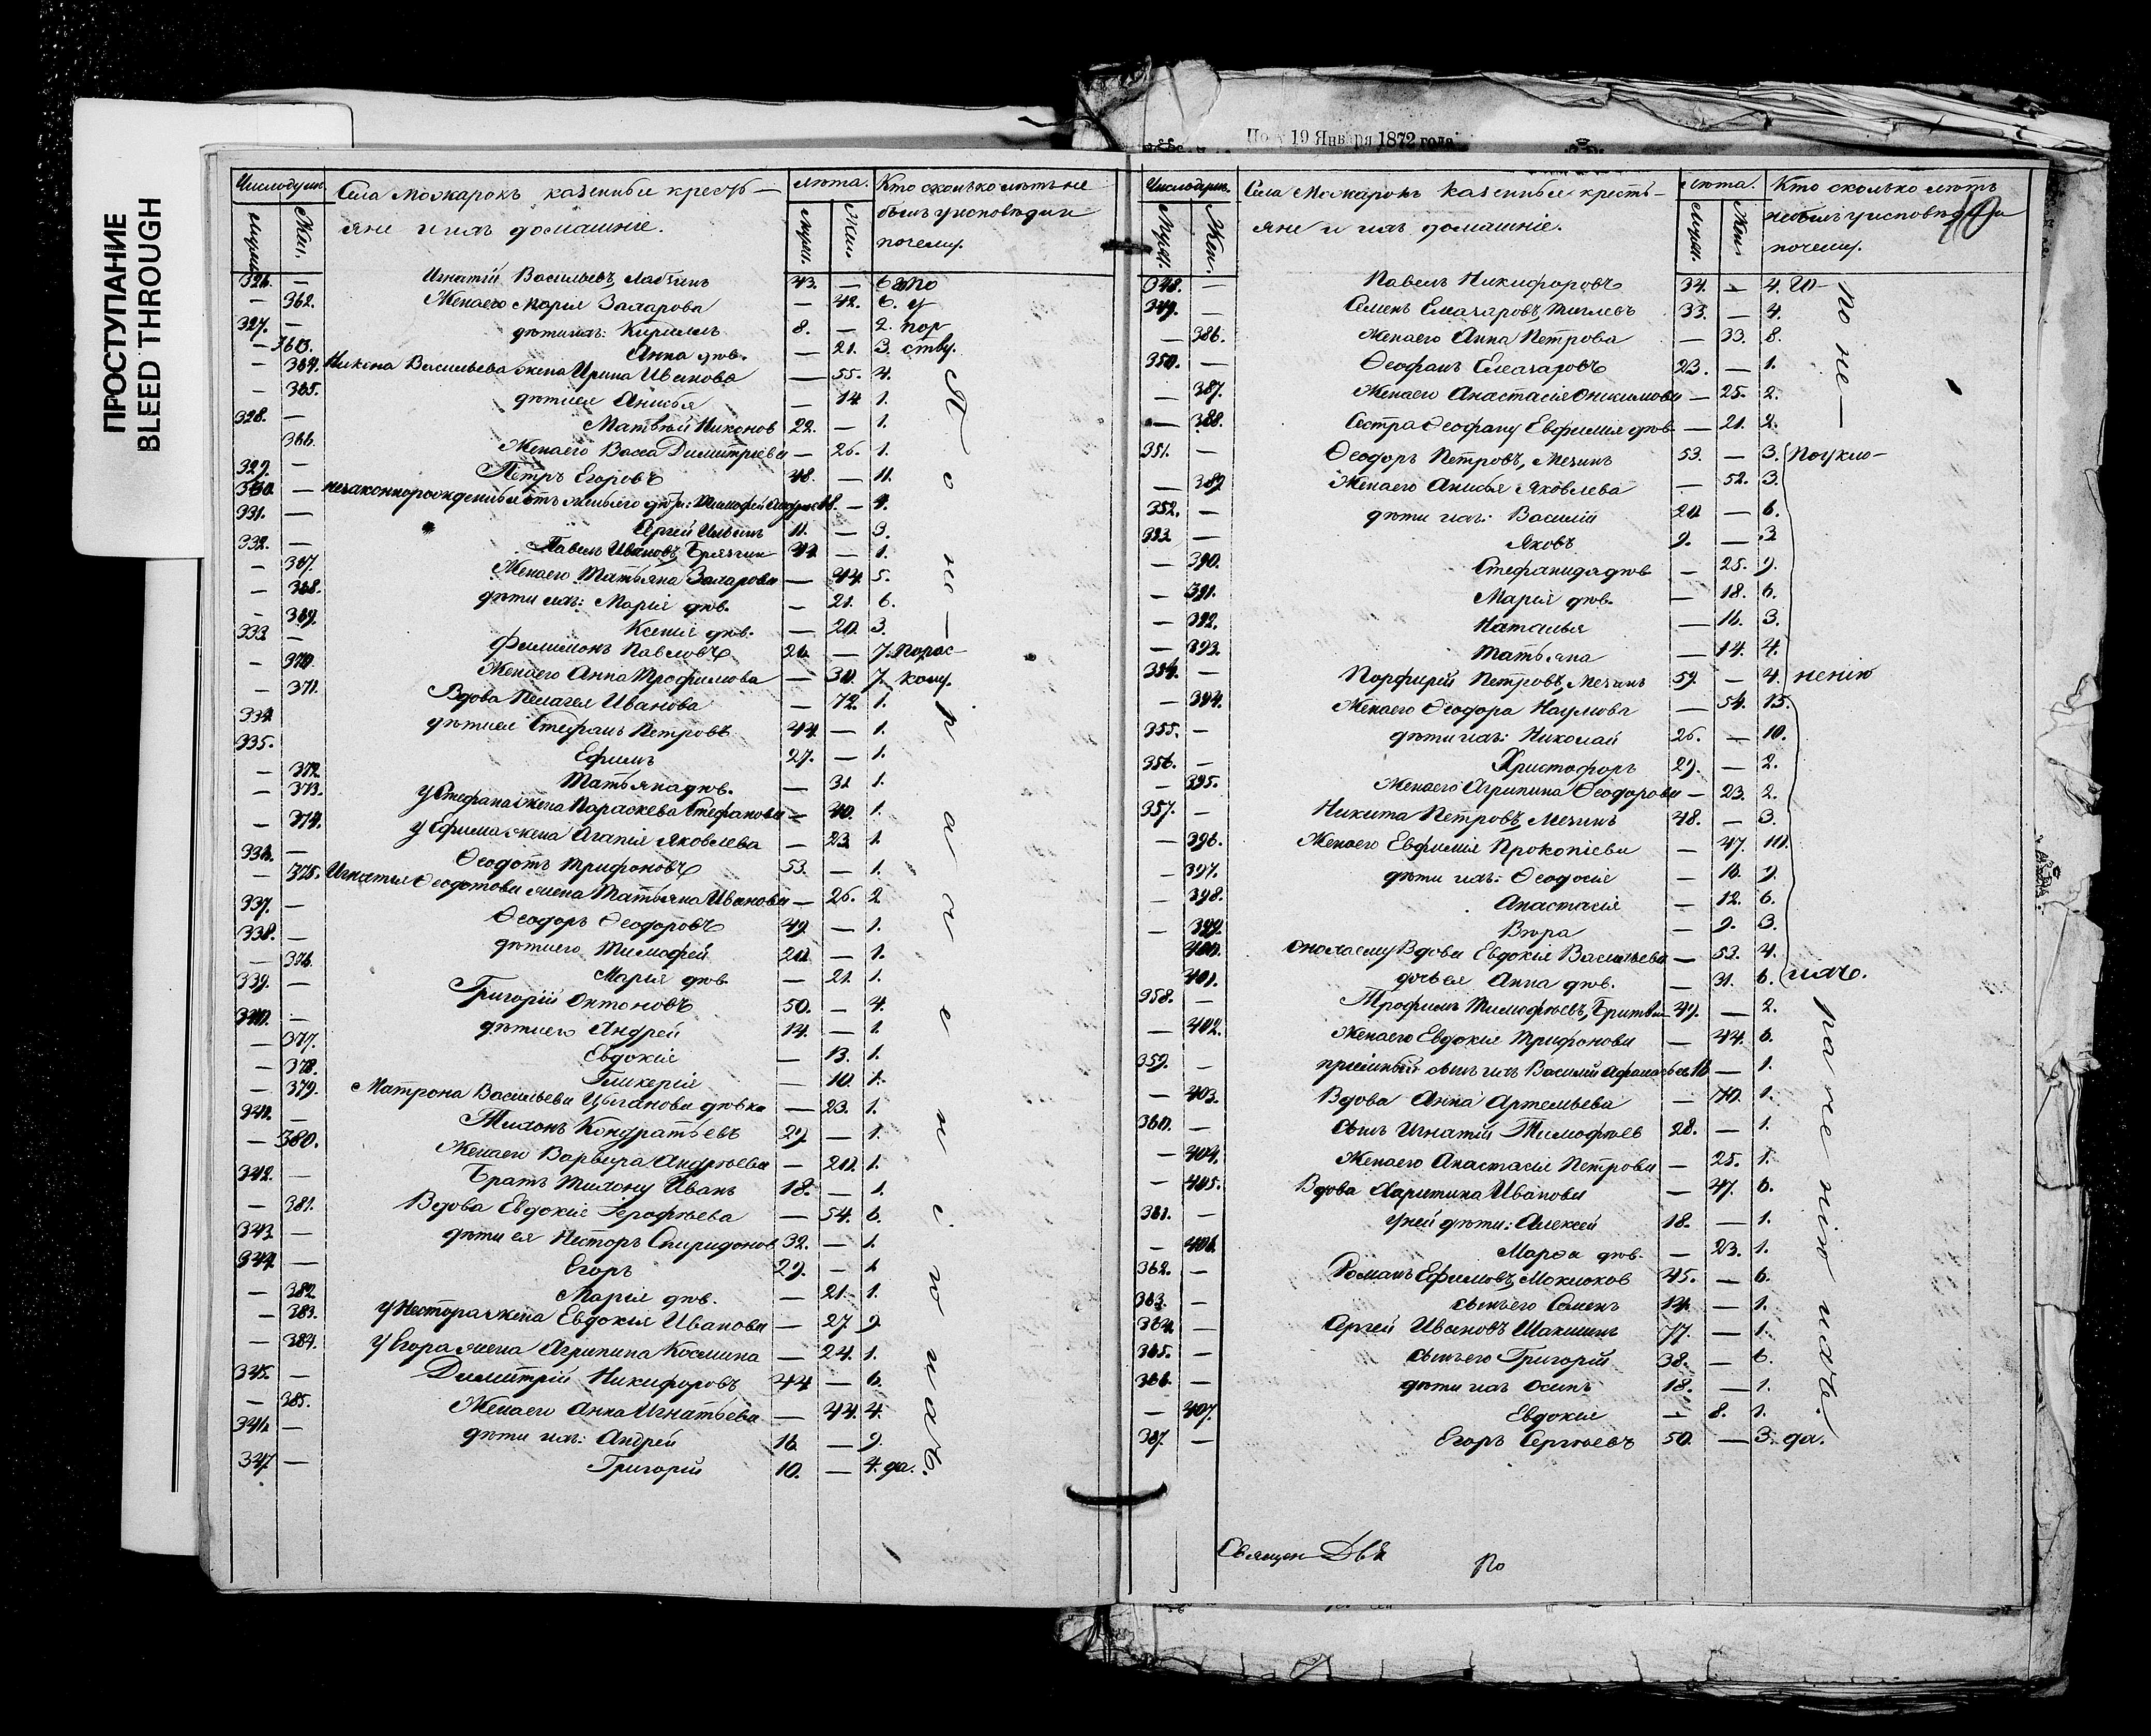 ПРОСТУПАНИЕ
BLEED THROUGH
19 Января 1872 года
Число душъ. Села Можарокъ казенные кресть- Лѣта. Кто сколько лѣтъ не
Муж. Жен. яне и ихъ домашніе. Муж. Жен. былъ у исповѣди и
почему.
326. — Игнатій Васильевъ 43. — 6
— 362. Жена его Марія Захарова — 42. 6. у
327. — дѣти ихъ: Кириллъ 8. — 2. пор
— 363. Анна дѣв. — 21. 3. ству.
— 364. Никона Васильева жена Ирина Иванова — 55. 4.
— 365. дѣти ея Анисья — 14. 1.
328. — Матвѣй Никонов 22. — 1.
366. Жена его Васса Димитріева — 26. 1.
329. — Петръ Егоровъ 48. — 11.
330. — — 4.
331. — Сергей Ильинъ 11. — 3.
332. — Павелъ Ивановъ, 44. — 1.
— 367. Жена его Татьяна Захарова — 44. 5.
— 368. дѣти ихъ: Марія дѣв. — 21. 6.
— 369. Ксенія дѣв. — 20. 3.
333. — Филимонъ Павловъ 26. — 7. По рас-
— 370. Жена его Анна Трофимова — 30. 7. колу.
— 371. Вдова Пелагея Иванова — 72. 1.
334. дѣти ея Стефанъ Петровъ 44. — 1.
335. Ефимъ 27. — 1.
— 372. Татьяна дѣв. — 31. 1.
— 373. у Стефана жена Параскева Стефанова — 40. 1.
— 374. у Ефима жена Агапія Яковлева — 23. 1.
336. — Ѳеодотъ Трифоновъ 53. — 1.
— 375. Игнатья Ѳеодотова жена Татьяна Иванова — 26. 2.
337. — Ѳеодоръ Ѳеодоровъ 49. — 1.
338. — дѣти его Тимофей 20. — 1.
— 376. Марія дѣв. — 21. 1.
339. — Григорій Антоновъ 50. — 4.
340. — дѣти его Андрей 14. — 1.
— 377. Евдокія — 13. 1.
— 378. Гликерія — 10. 1.
— 379. Матрона Васильева Цыганова дѣвка — 23. 1.
341. — Тихонъ Кондратьевъ 29. — 1.
— 380. Жена его Варвара Андреева — 20. 1.
342. — Братъ Тихону Иванъ 18. — 1.
— 381. Вдова Евдокія Ерофѣева — 54. 6.
343. — дѣти ея Несторъ Спиридонов 32. — 1.
344. — Егоръ 29. — 1.
— 382. Марія дѣв. — 21. 1.
— 383. у Нестора жена Евдокія Иванова — 27. 9.
— 384. у Егора жена Агрипина Космина — 24. 1.
345. — Димитрій Никифоровъ 44. — 6.
— 385. Жена его Анна Игнатьева — 44. 4.
346. — дѣти ихъ: Андрей 16. — 9.
347. — Григорій 10. — 4. да.
По нераченію ихъ.
Число душъ. Села Можарокъ казенные кресть- Лѣта. Кто сколько лѣтъ
Муж. Жен. яне и ихъ домашніе. Муж. Жен. не былъ у исповѣди и
почему.
348. — Павелъ Никифоровъ 34. — 4.
349. — Семенъ Елеазаровъ, 33. — 4.
— 386. Жена его Анна Петрова — 33. 8.
350. — Ѳеофанъ Елеазаровъ 23. — 1.
— 387. Жена его Анастасія Онисимова — 25. 2.
— 388. Сестра Ѳеофану Евфимія дѣв. — 21. 2.
351. — Ѳеодоръ Петровъ, Мечинъ 53. — 3. По укло-
— 389. Жена его Анисья Яковлева — 52. 3.
352. — дѣти ихъ: Василій 20. — 6.
353. — Яковъ 9. — 3.
— 390. Стефанида дѣв. — 25. 9.
— 391. Марія дѣв. — 18. 6.
— 392. Наталья — 16. 3.
— 393. Татьяна — 14. 4.
354. — Порфирей Петровъ, Мечинъ 59. — 4. ненію
— 394. Жена его Ѳеодора Наумова — 54. 13.
355. — дѣти ихъ: Николай 26. — 10.
356. — Христофоръ 29. — 2.
— 395. Жена его Агрипина Ѳеодорова — 23. 2.
357. — Никита Петровъ, Мечинъ 48. — 3.
— 396. Жена его Евфимія Прокопіева — 47. 10.
— 397. дѣти ихъ: Ѳеодосія — 16. 9.
— 398. Анастасія — 12. 6.
— 399. Вѣра — 9. 3.
400. Вдова Евдокія Васильева — 53. 4.
401. дочь ея Анна дѣв. — 31. 6. ихъ.
358. — Трофимъ Тимофѣевъ, 49. — 2.
— 402. Жена его Евдокія Трифонова — 44. 6.
359. — пріемный сынъ ихъ Василій 10. — 1.
— 403. Вдова Анна Артемьева — 70. 1.
360. — сынъ Игнатій Тимофѣев 28. — 1.
— 404. Жена его Анастасія Петрова — 25. 1.
— 405. Вдова Харитина Иванова — 47. 6.
361. — у ней дѣти: Алексей 18. — 1.
— 406. Марѳа дѣв. — 23. 1.
362. — Романъ Ефимовъ, Моклоков 45. — 6.
363. — сынъ его Семенъ 14. — 1.
364. — Сергей Ивановъ Шакшинъ 77. — 1.
365. — сынъ его Григорій 38. — 6.
366. — дѣти ихъ Осипъ 18. — 1.
— 407. Евдокія — 8. 1.
367. — Егоръ Сергѣевъ 50. — 3. да.
По нераченію ихъ.
Священ
По